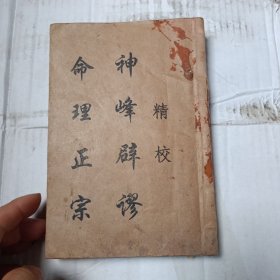 精校
神峰辟謬
命理正宗